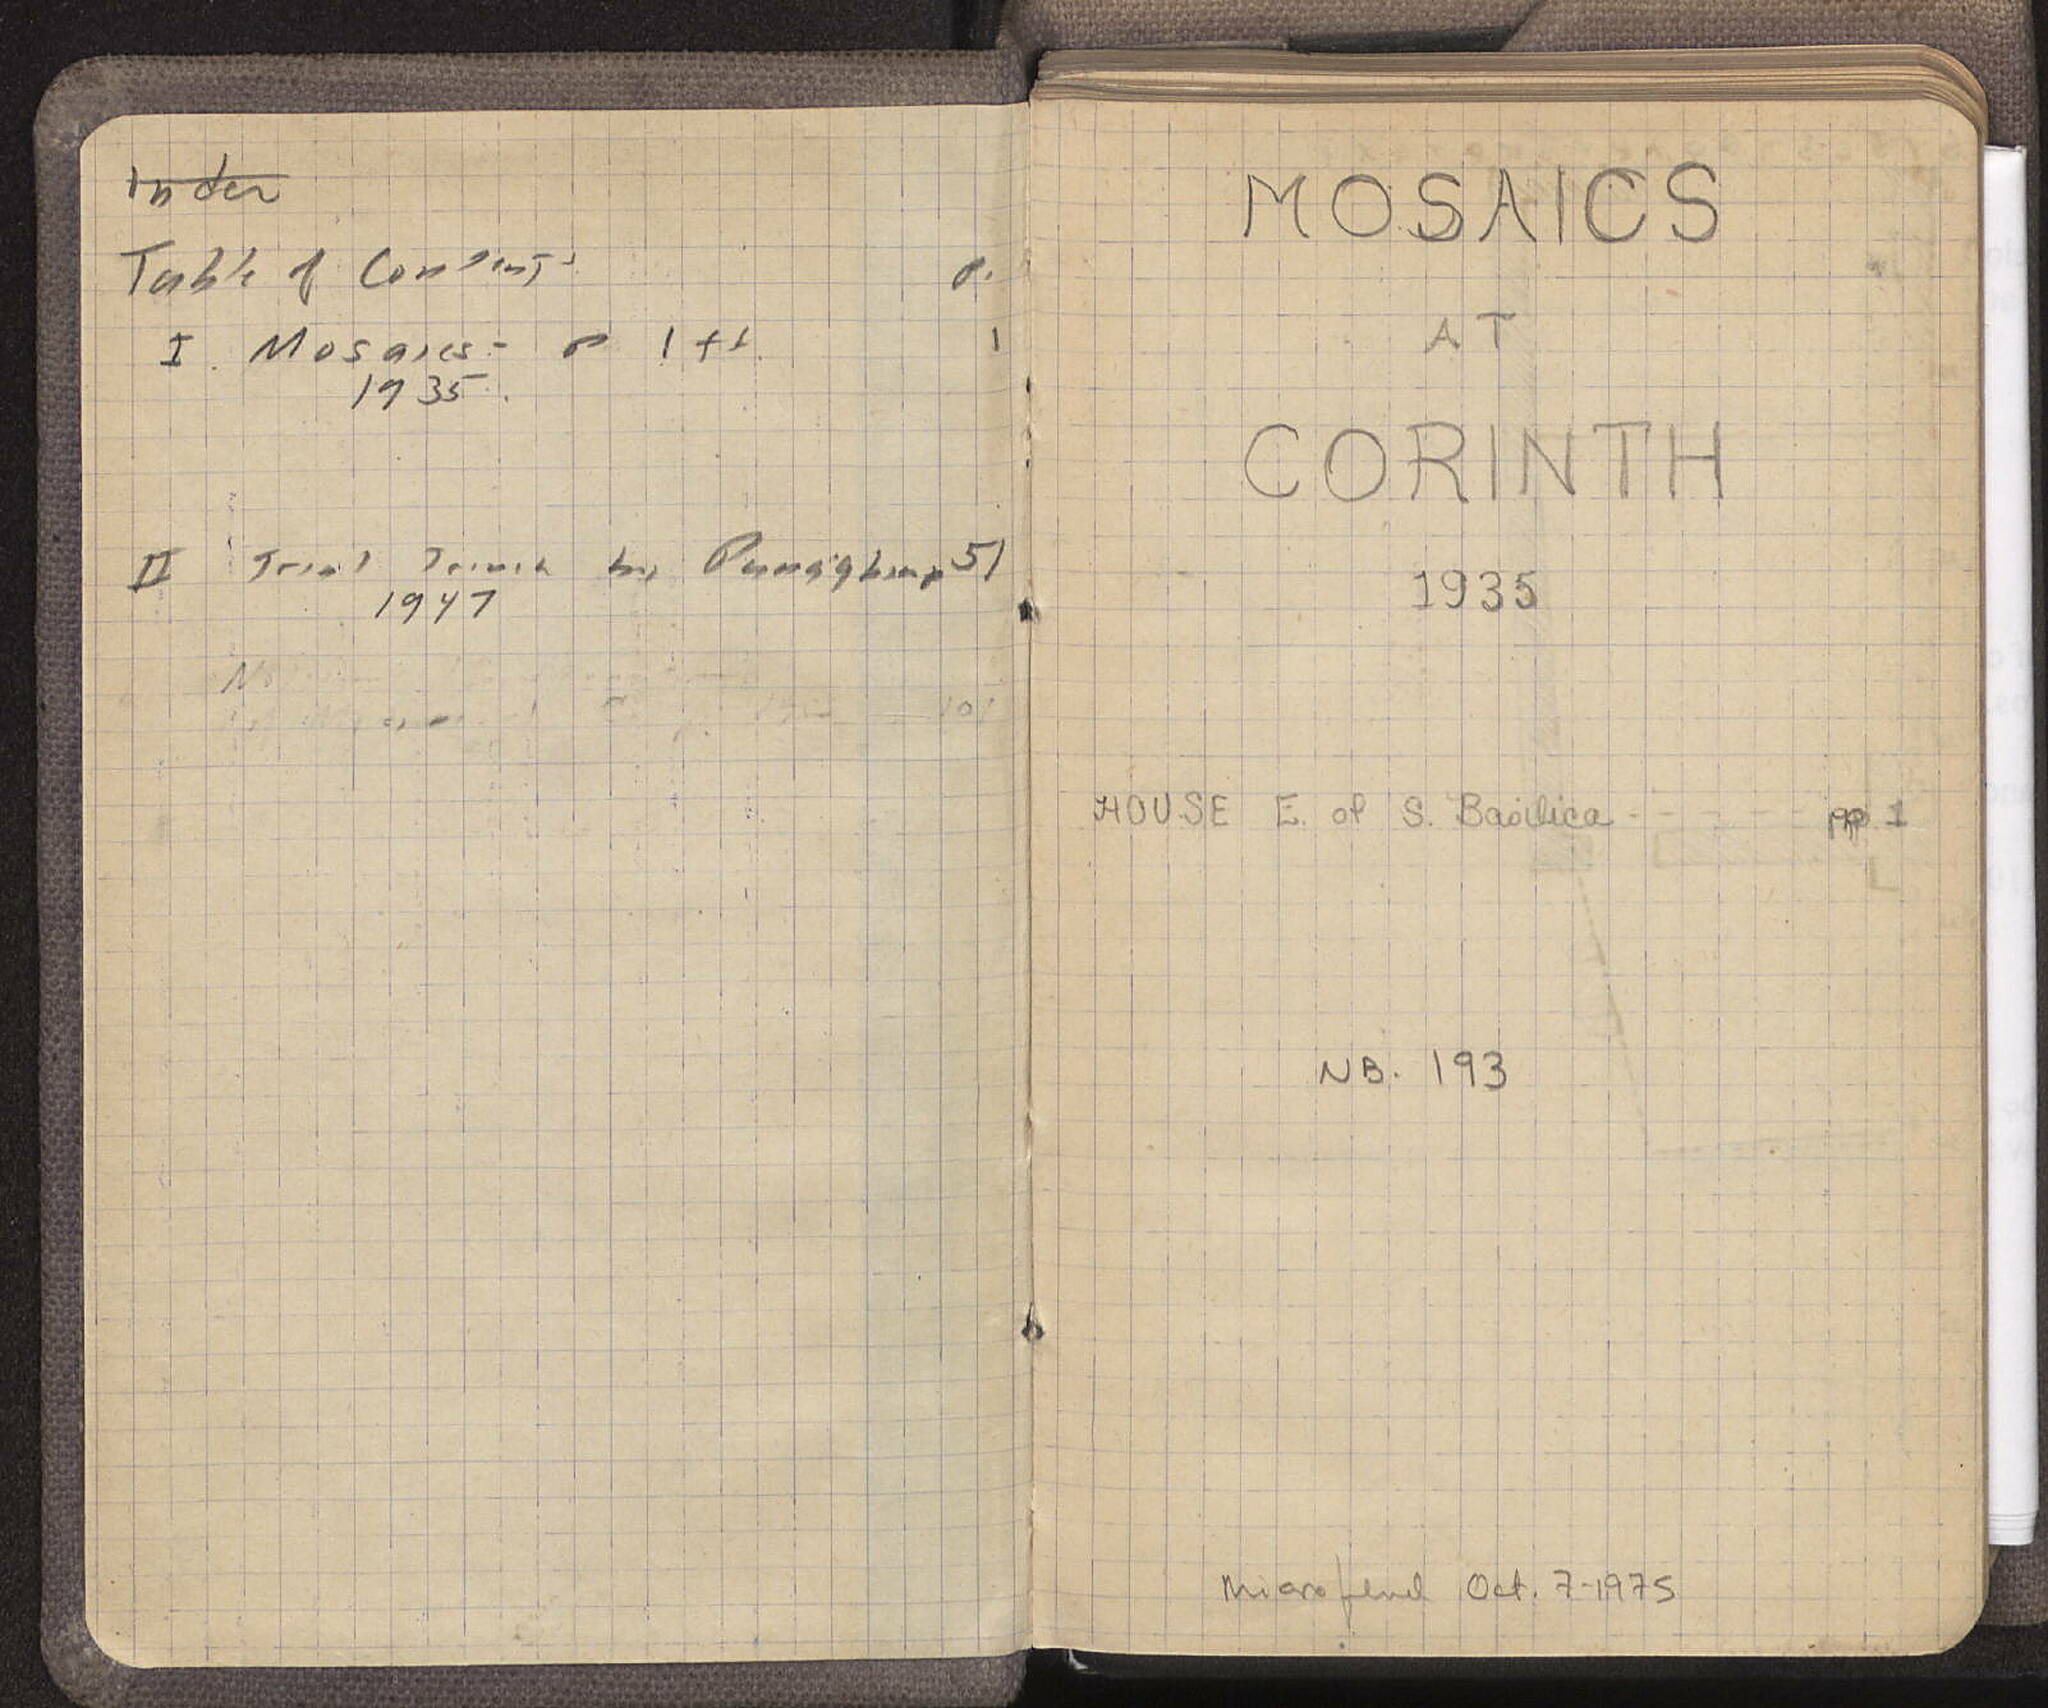 Index
Table of Contents p.
I. Mosaics - p 1 ff. 1
1935.
II Trial Trench by 51
1947
101
MOSAICS
AT
CORINTH
1935
HOUSE E. of S. Basilica - - - - - pp 1
NB. 193
Microfilmed Oct. 7-1975